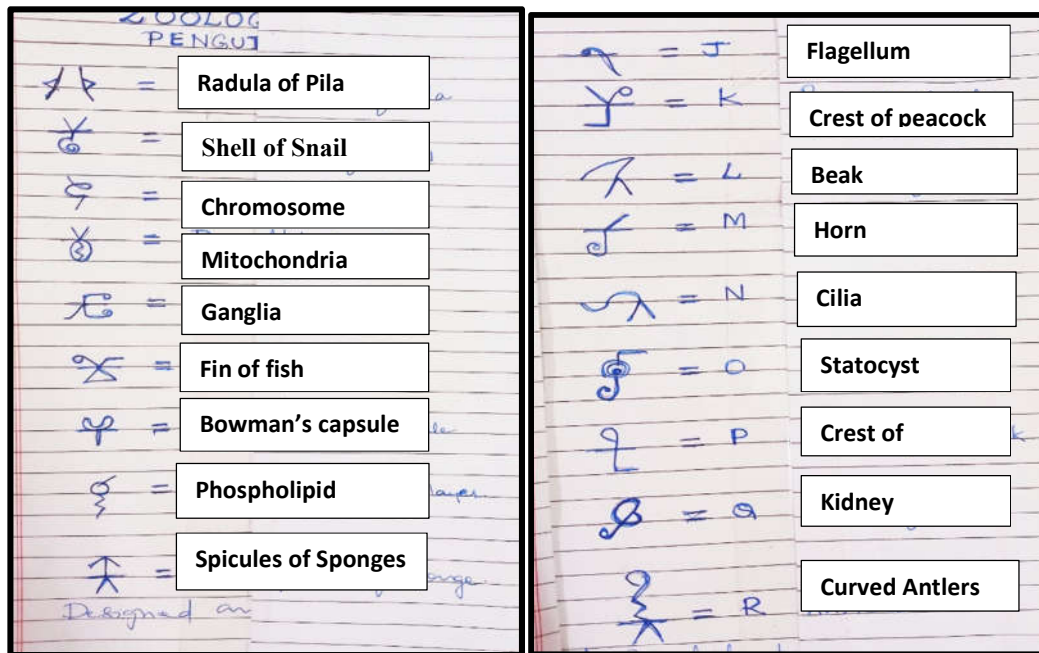 ZOOLOG
PENGUI
= Radula of Pila
= Shell of Snail
= Chromosome
= Mitochondria
= Ganglia
= Fin of fish
= Bowman's capsule
= Phospholipid
= Spicules of Sponges
Designed an
= J Flagellum
= K Crest of peacock
= L Beak
= M Horn
= N Cilia
= O Statocyst
= P Crest of
= Q Kidney
= R Curved Antlers